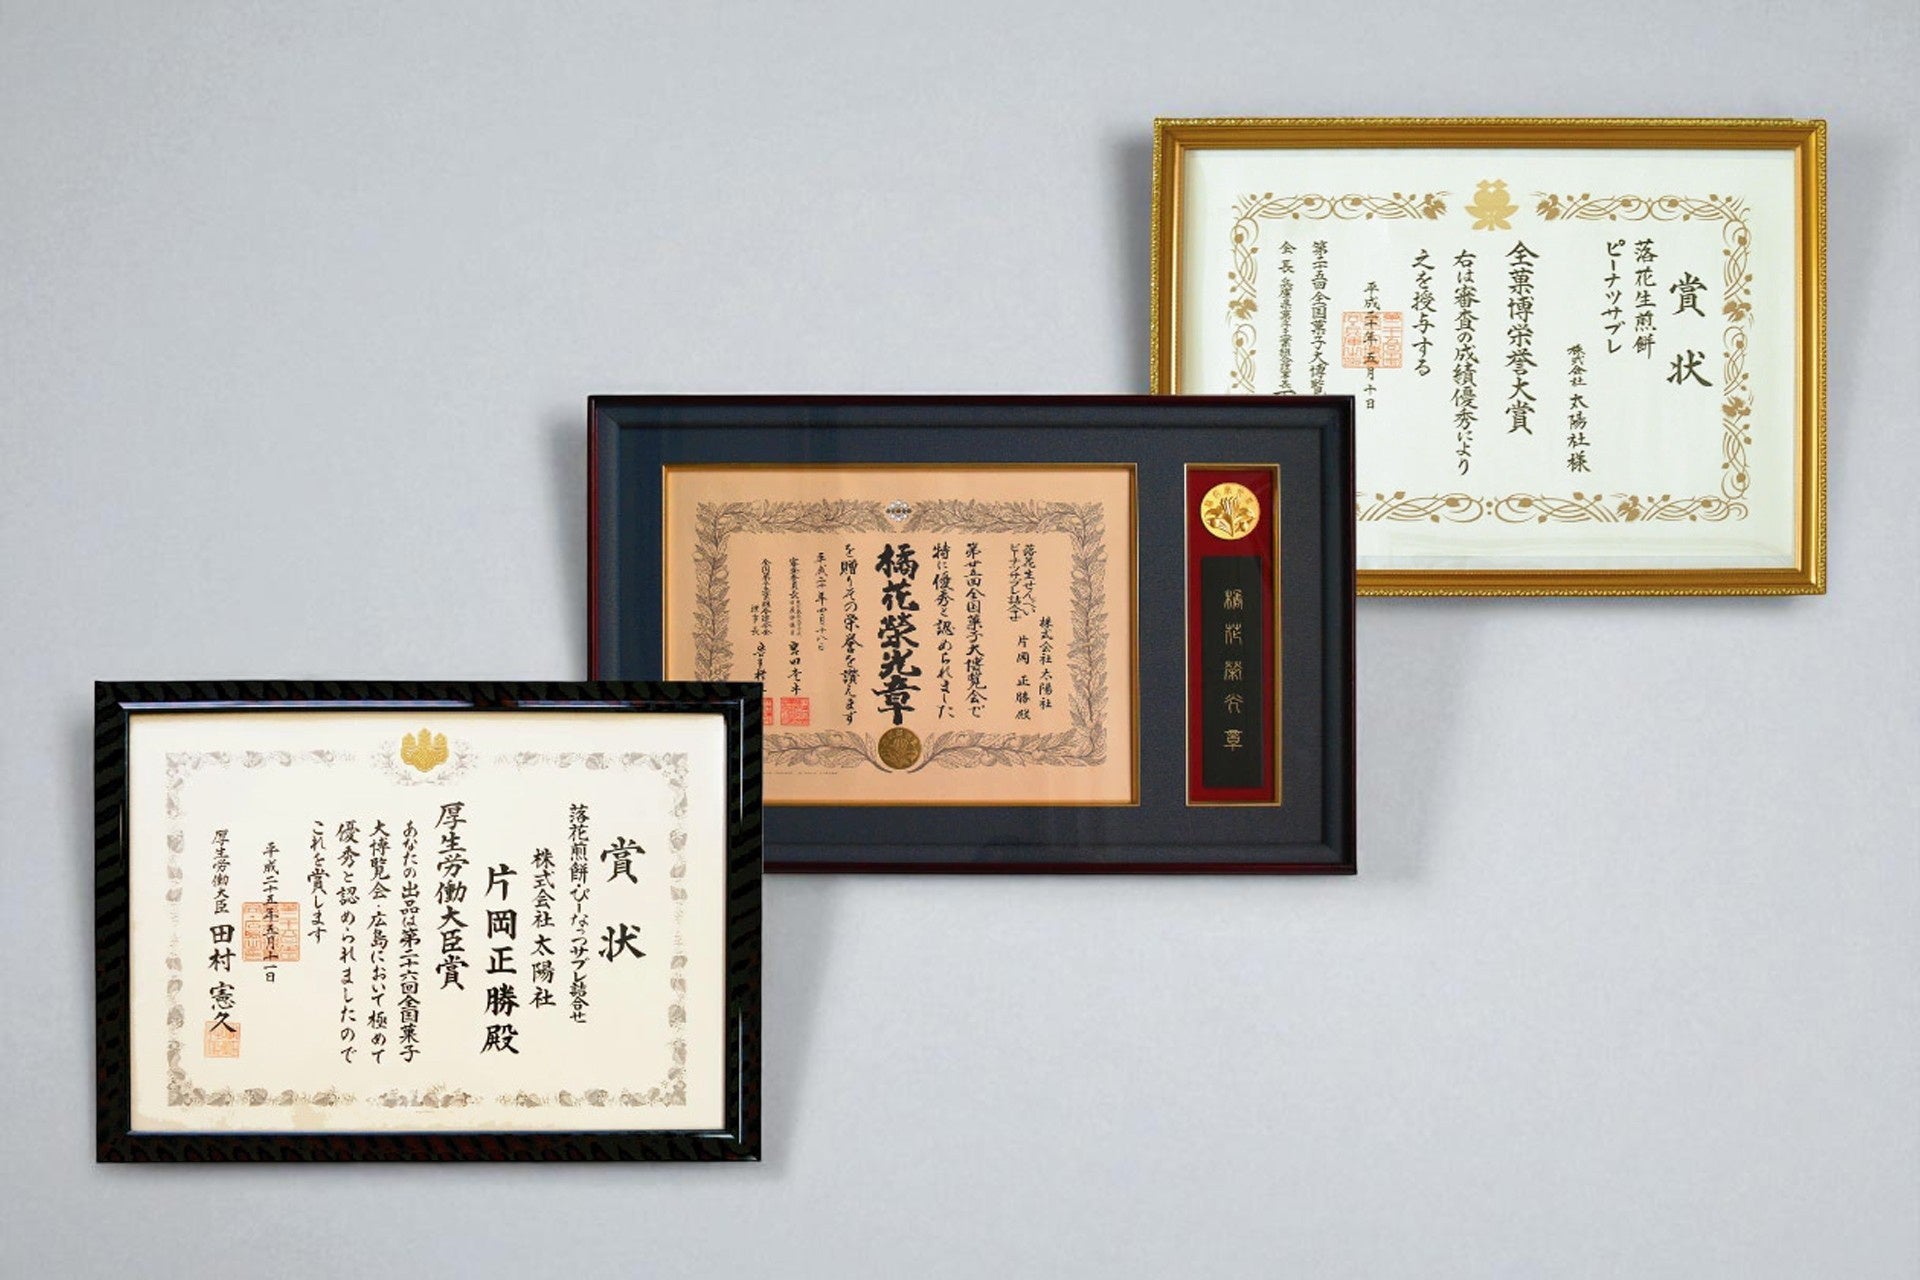 賞状
落花煎餅・ぴーなっつサブレ詰合せ
株式会社 太陽社
片岡正勝殿
厚生労働大臣賞
あなたの出品は第二十六回全国菓子
大博覧会・広島において極めて
優秀と認められましたので
これを賞します
平成二十五年五月十一日
厚生労働大臣 田村憲久
落花生せんべい
ピーナツサブレ詰合せ
株式会社 太陽社
片岡 正勝 殿
第廿五回全国菓子大博覧会で
特に優秀と認められました
橘花榮光章
を贈りその栄誉を讃えます
平成二十年四月十八日
審査委員長
全国菓子工業組合連合会
理事長
橘花榮光章
賞状
落花生煎餅
ピーナツサブレ
株式会社 太陽社様
全菓博栄誉大賞
右は審査の成績優秀により
之を授与する
平成二十年五月十日
第二十五回全国菓子大博覧
会長 兵庫県菓子工業組合理事長